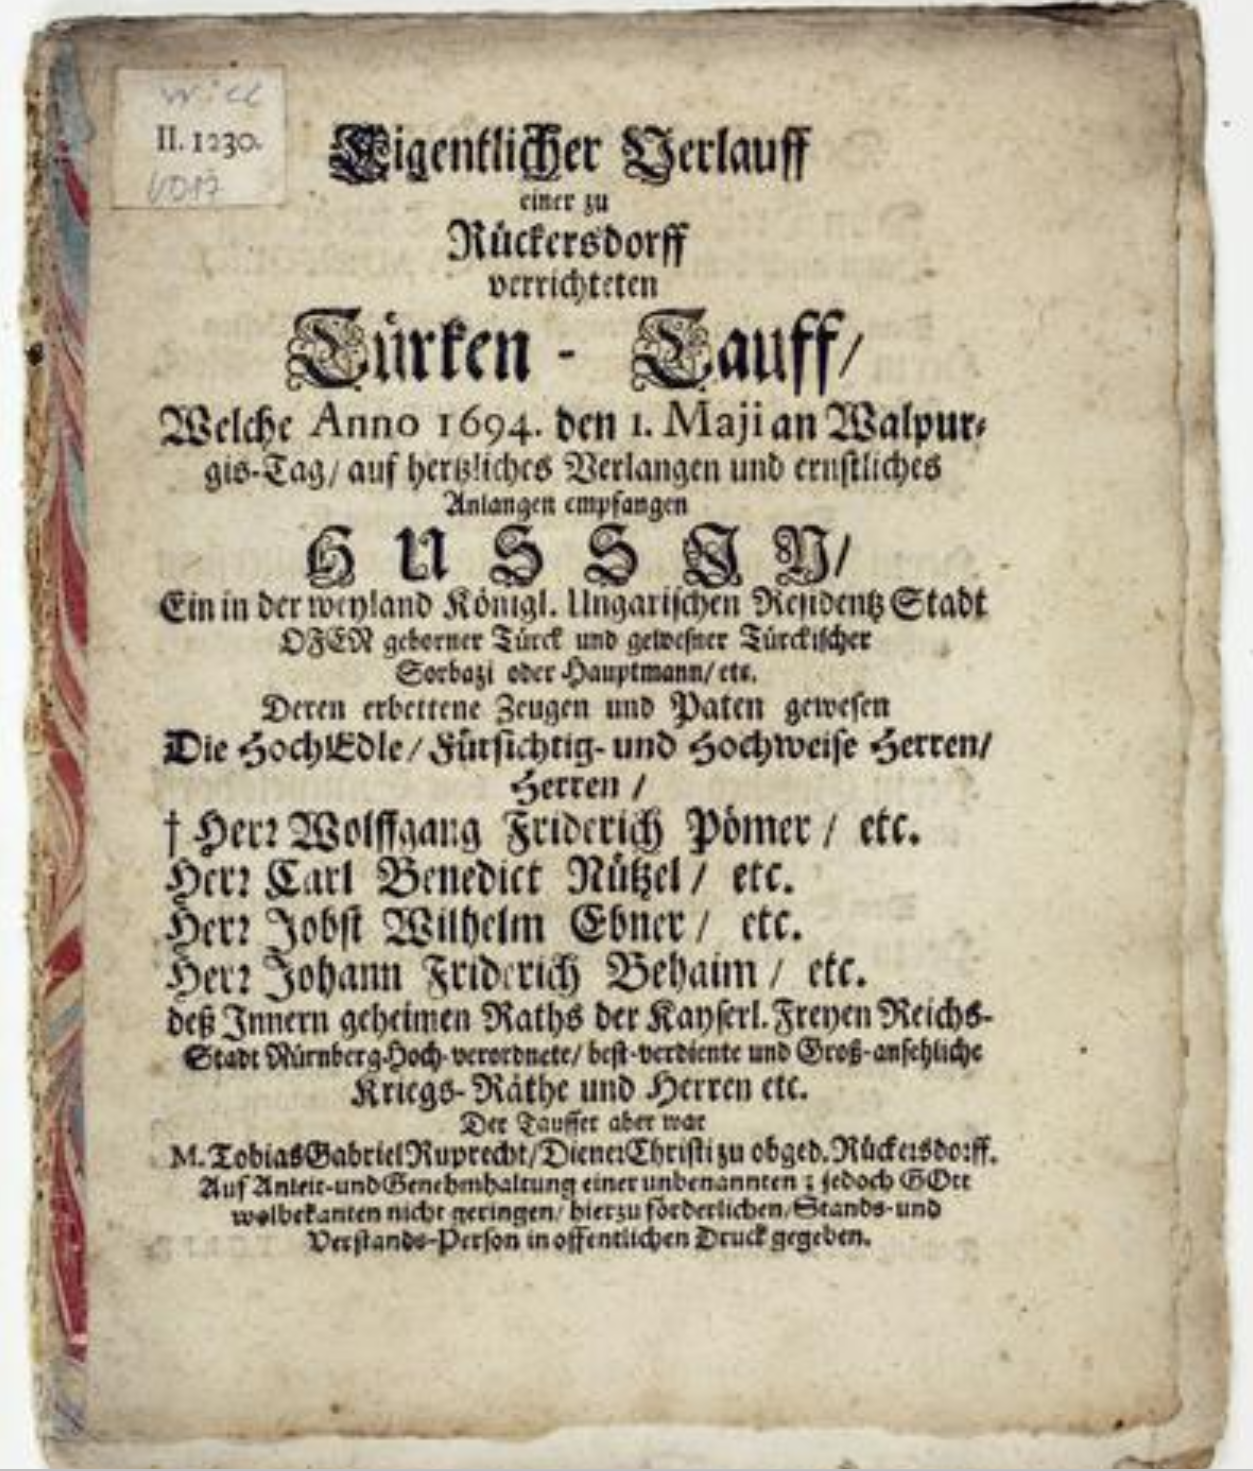 Will
II. 1230.
VD17
Eigentlicher Verlauff
einer zu
Rückersdorff
verrichteten
Türken - Tauff /
Welche Anno 1694. den 1. Maji an Walpur-
gis-Tag / auf hertzliches Verlangen und ernstliches
Anlangen empfangen
HUSSIN /
Ein in der weyland Königl. Ungarischen Residentz Stadt
OFEN geborner Türck und gewesner Türckischer
Sorbazi oder Hauptmann / etc.
Deren erbettene Zeugen und Paten gewesen
Die HochEdle / Fürsichtig- und Hochweise Herren /
Herren /
† Herr Wolffgang Friderich Pömer / etc.
Herr Carl Benedict Nützel / etc.
Herr Jobst Wilhelm Ebner / etc.
Herr Johann Friderich Behaim / etc.
deß Innern geheimen Raths der Kayserl. Freyen Reichs-
Stadt Nürnberg Hoch-verordnete / best-verdiente und Groß-ansehliche
Kriegs-Räthe und Herren etc.
Der Tauffer aber war
M. Tobias Gabriel Ruprecht / Diener Christi zu obged. Rückersdorff.
Auf Anleit- und Genehmhaltung einer unbenannten ; jedoch GOtt
wolbekanten nicht geringen / hierzu förderlichen / Stands- und
Verstands-Person in offentlichen Druck gegeben.